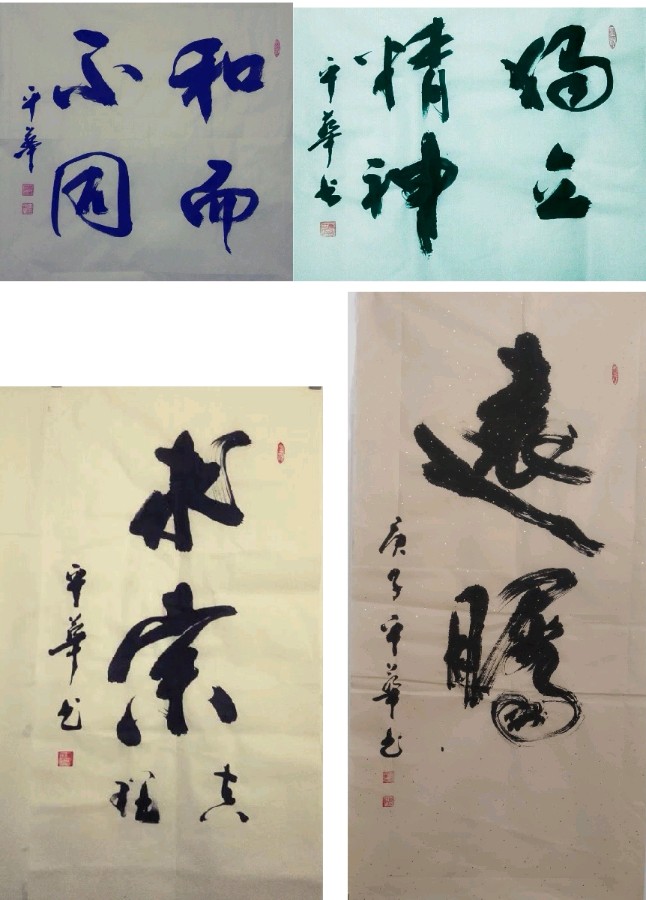 和而
不同
平華
獨立
精神
平華书
求索
真理
平華书
遠矚
庚子平華书